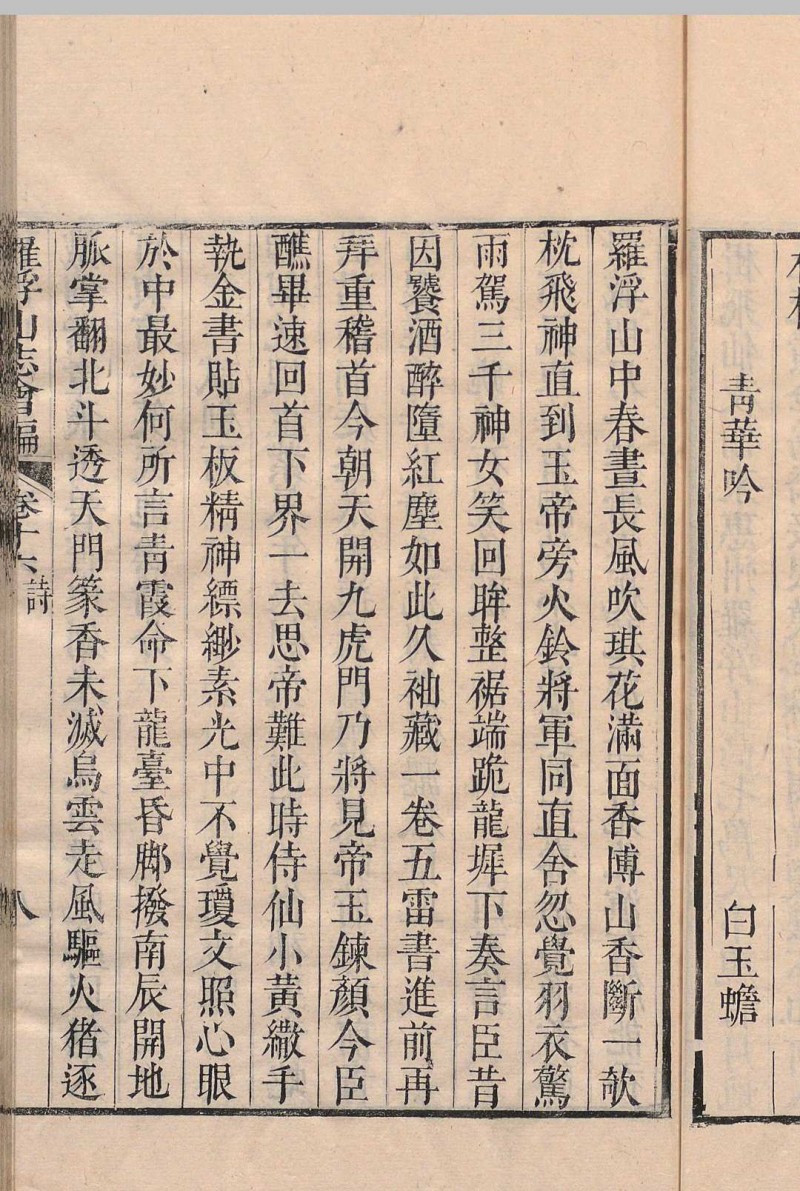 青華吟　白玉蟾
羅浮山中春晝長風吹琪花滿面香博山香斷一欹
枕飛神直到玉帝旁火鈴將軍同直舍忽覺羽衣驚
雨駕三千神女笑回眸整裾端跪龍墀下奏言臣昔
因饕酒醉墮紅塵如此久袖藏一卷五雷書進前再
拜重稽首今朝天開九虎門乃將見帝玉鍊顏今臣
醮畢速回首下界一去思帝難此時侍仙小黃繖手
執金書貼玉板精神縹緲素光中不覺瓊文照心眼
於中最妙何所言青霞命下龍臺昏脚撥南辰開地
脈掌翻北斗透天門篆香未滅烏雲走風驅火猪逐
羅浮山志會編　卷十六　詩　八